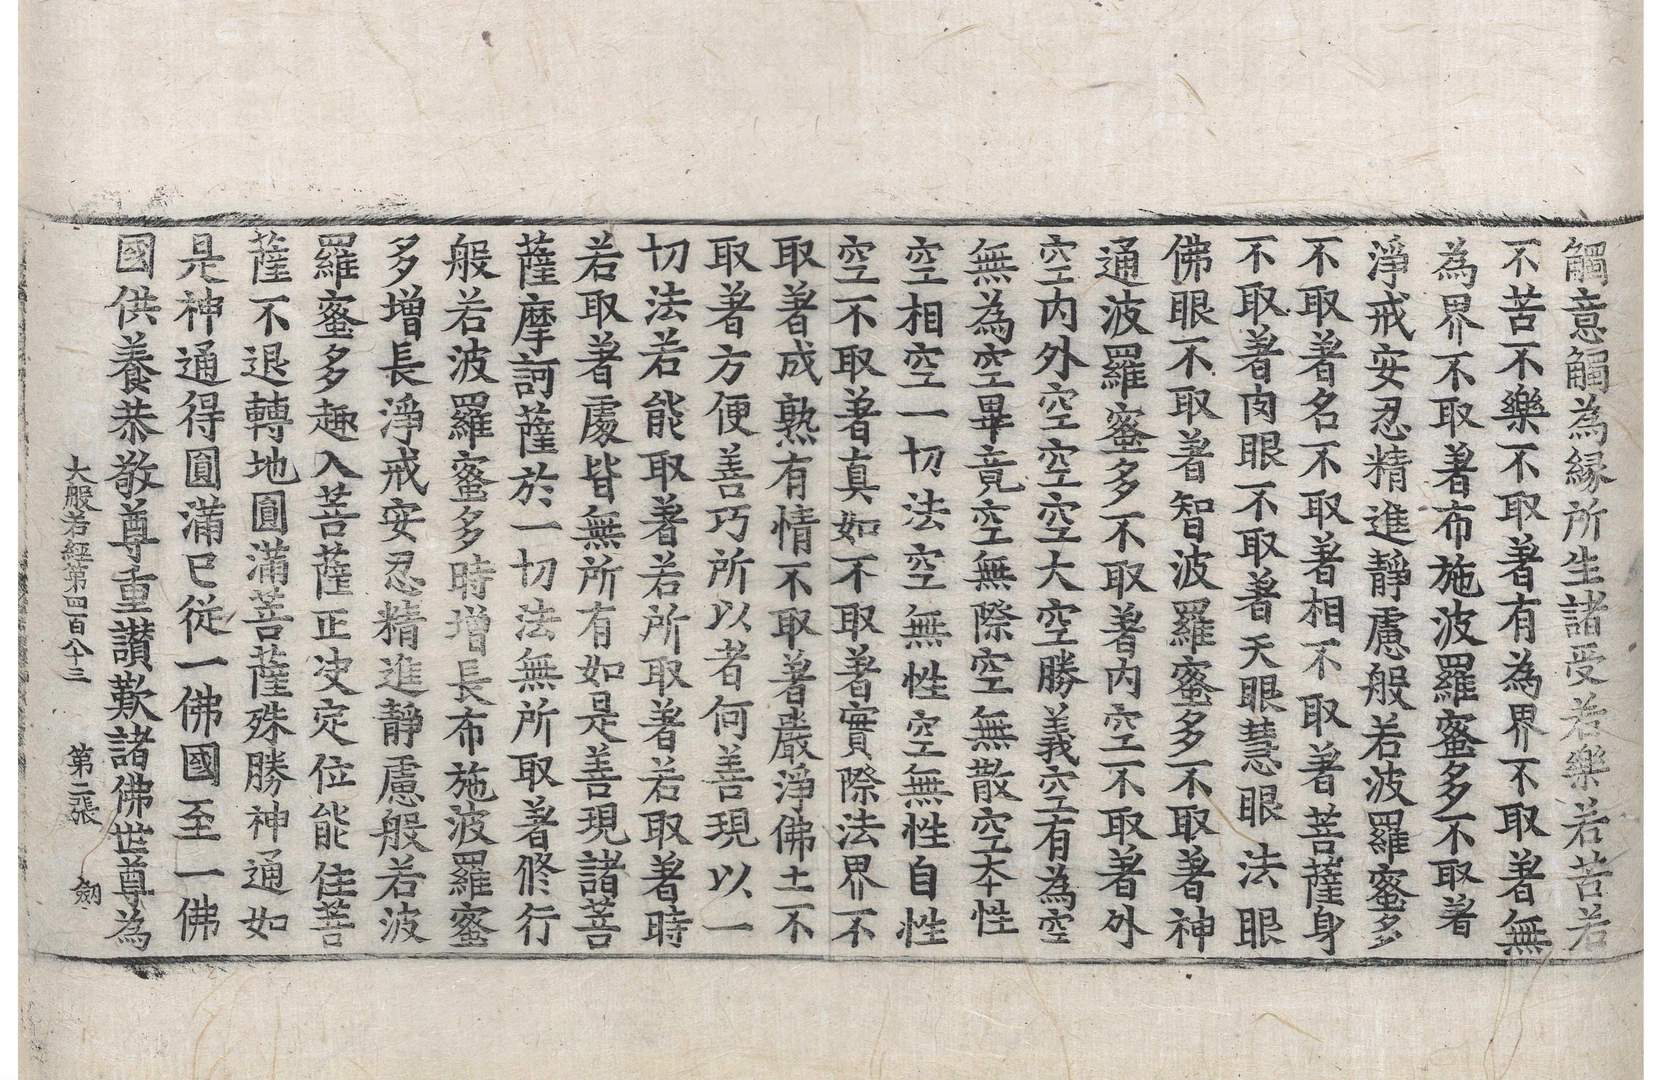 觸意觸為緣所生諸受若樂若苦若
不苦不樂不取著有為界不取著無
為界不取著布施波羅蜜多不取著
淨戒安忍精進靜慮般若波羅蜜多
不取著名不取著相不取著菩薩身
不取著肉眼不取著天眼慧眼法眼
佛眼不取著智波羅蜜多不取著神
通波羅蜜多不取著內空不取著外
空內外空空空大空勝義空有為空
無為空畢竟空無際空無散空本性
空相空一切法空無性空無性自性
空不取著真如不取著實際法界不
取著成熟有情不取著嚴淨佛土不
取著方便善巧所以者何善現以一
切法若能取著若所取著若取著時
若取著處皆無所有如是善現諸菩
薩摩訶薩於一切法無所取著修行
般若波羅蜜多時增長布施波羅蜜
多增長淨戒安忍精進靜慮般若波
羅蜜多趣入菩薩正決定位能住菩
薩不退轉地圓滿菩薩殊勝神通如
是神通得圓滿已從一佛國至一佛
國供養恭敬尊重讚歎諸佛世尊為
大般若經第四百八十三 第二張 劒